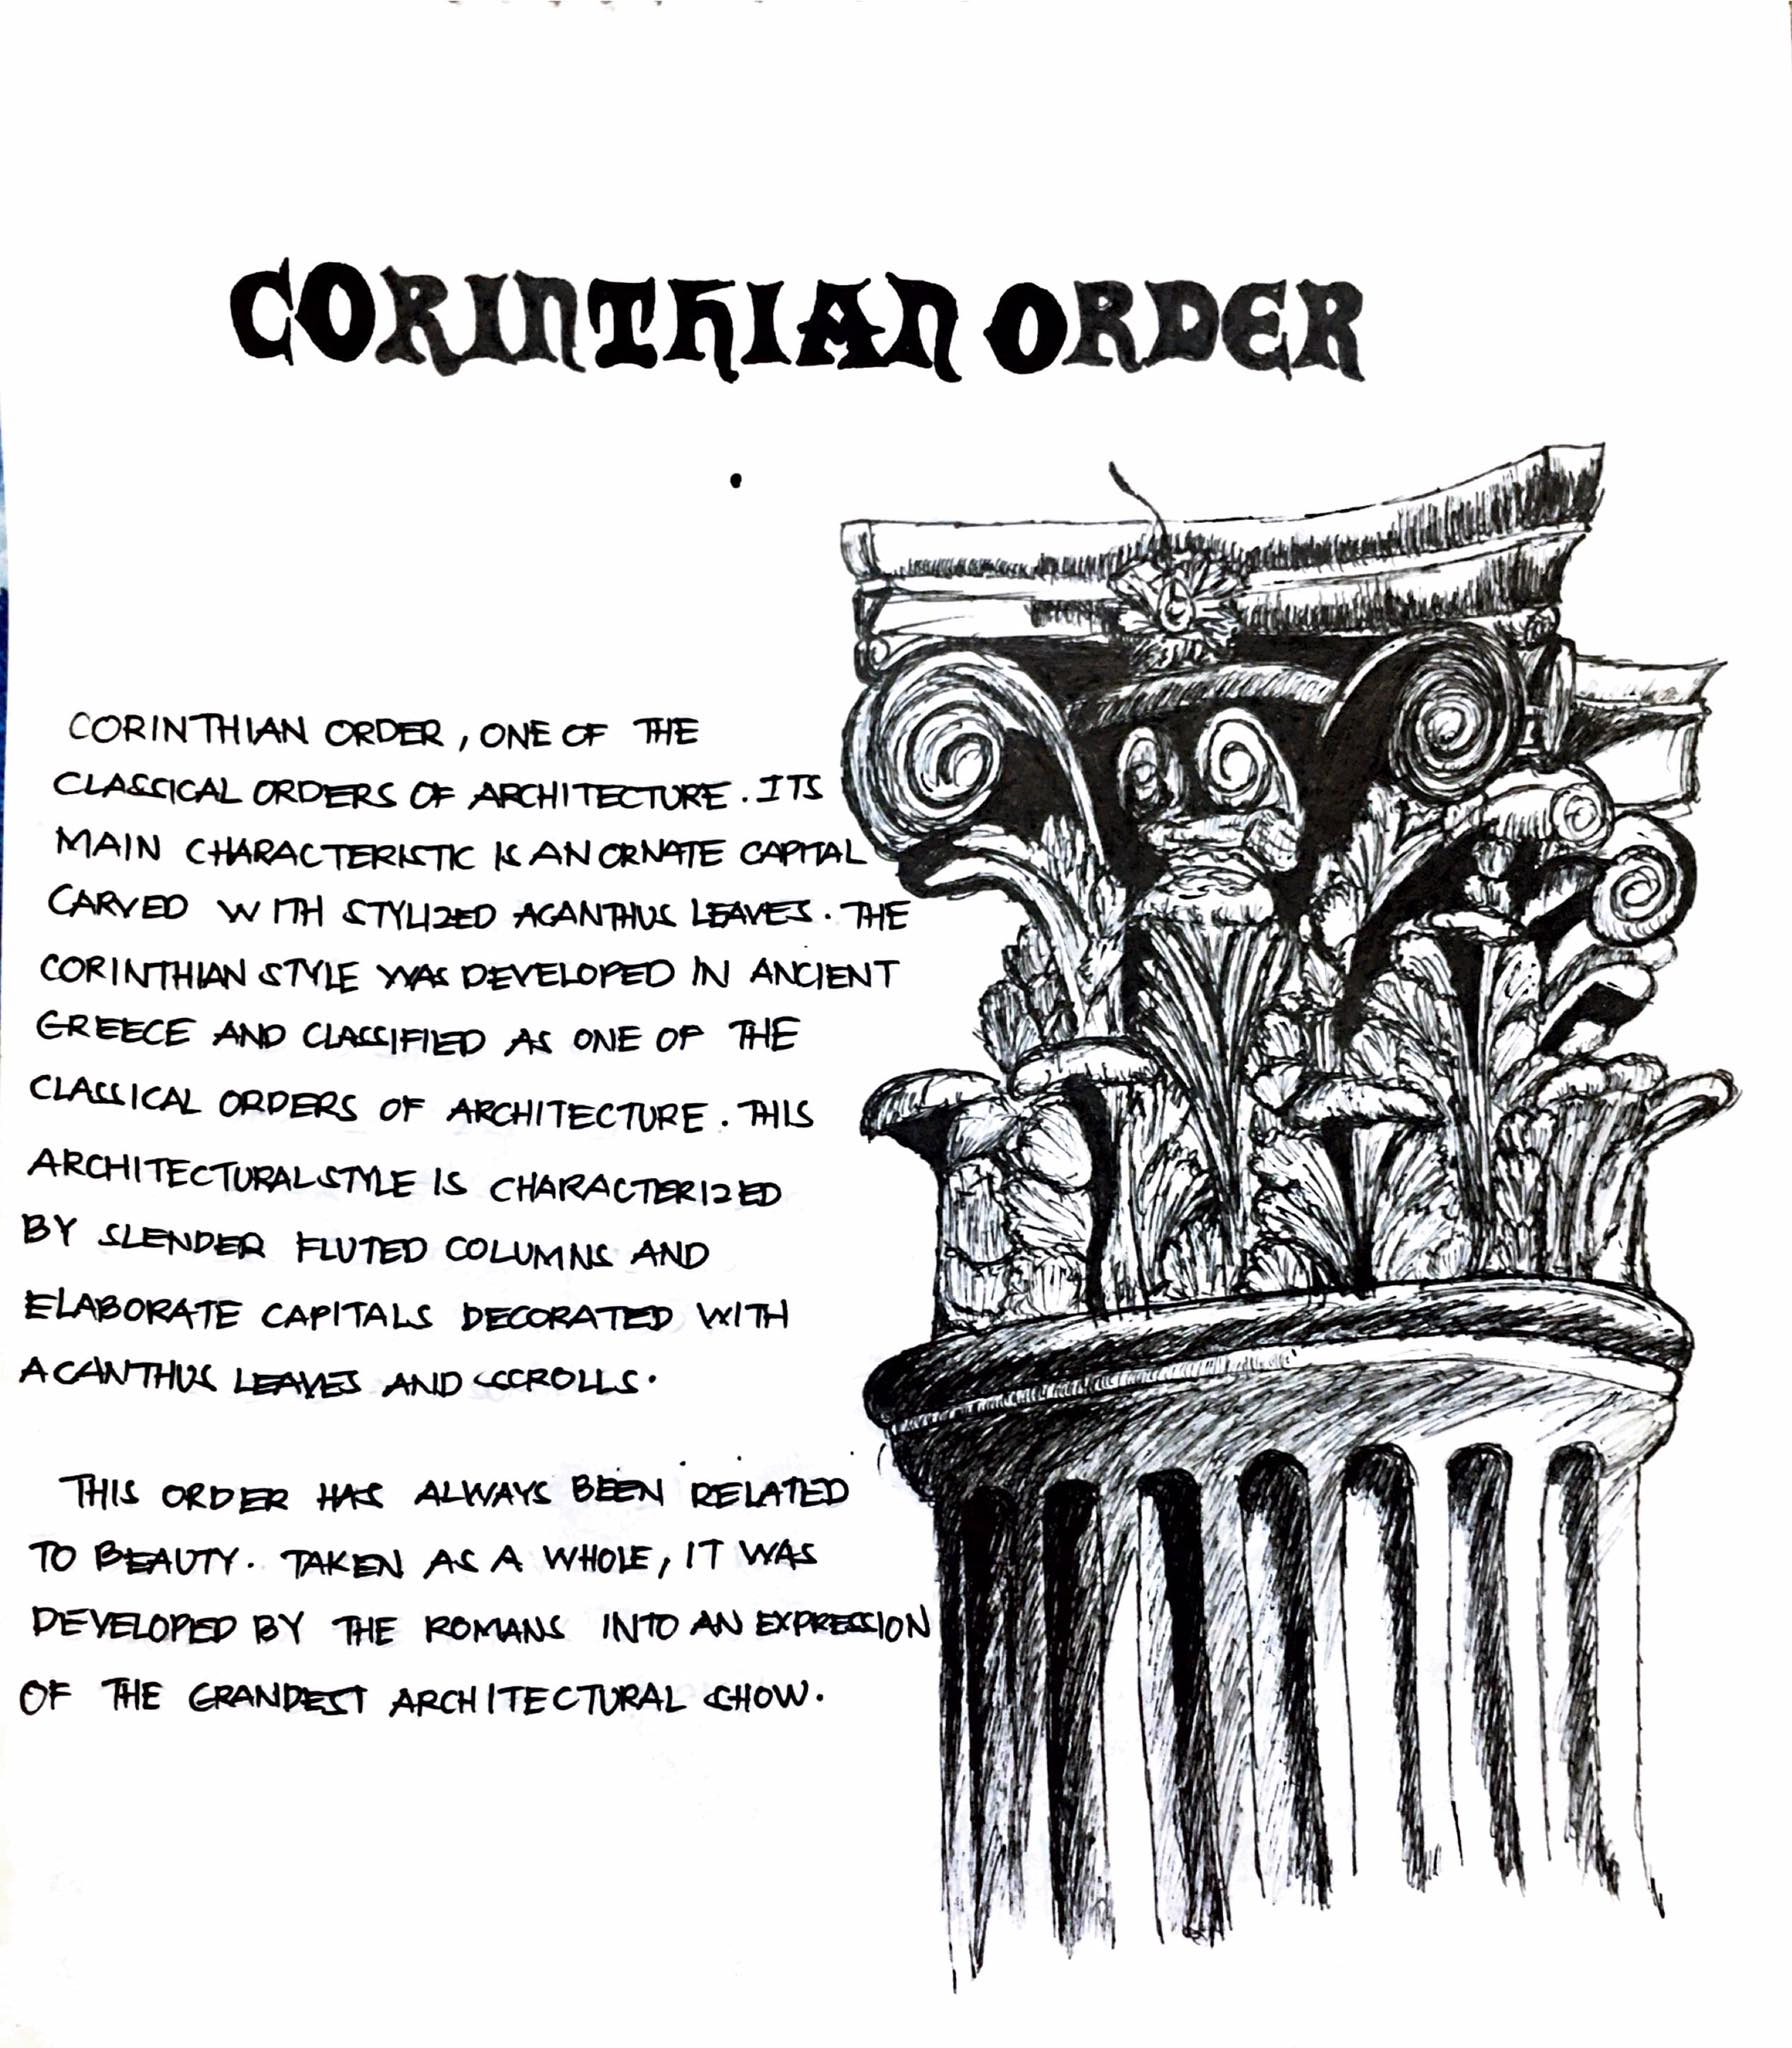 CORINTHIAN ORDER
CORINTHIAN ORDER, ONE OF THE
CLASSICAL ORDERS OF ARCHITECTURE. ITS
MAIN CHARACTERISTIC IS AN ORNATE CAPITAL
CARVED WITH STYLIZED ACANTHUS LEAVES. THE
CORINTHIAN STYLE WAS DEVELOPED IN ANCIENT
GREECE AND CLASSIFIED AS ONE OF THE
CLASSICAL ORDERS OF ARCHITECTURE. THIS
ARCHITECTURAL STYLE IS CHARACTERIZED
BY SLENDER FLUTED COLUMNS AND
ELABORATE CAPITALS DECORATED WITH
ACANTHUS LEAVES AND SCROLLS.
THIS ORDER HAS ALWAYS BEEN RELATED
TO BEAUTY. TAKEN AS A WHOLE, IT WAS
DEVELOPED BY THE ROMANS INTO AN EXPRESSION
OF THE GRANDEST ARCHITECTURAL SHOW.